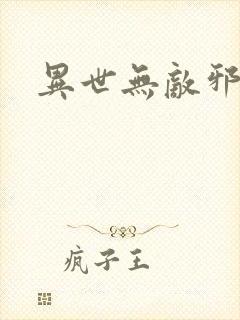 異世無敵邪
疯子王